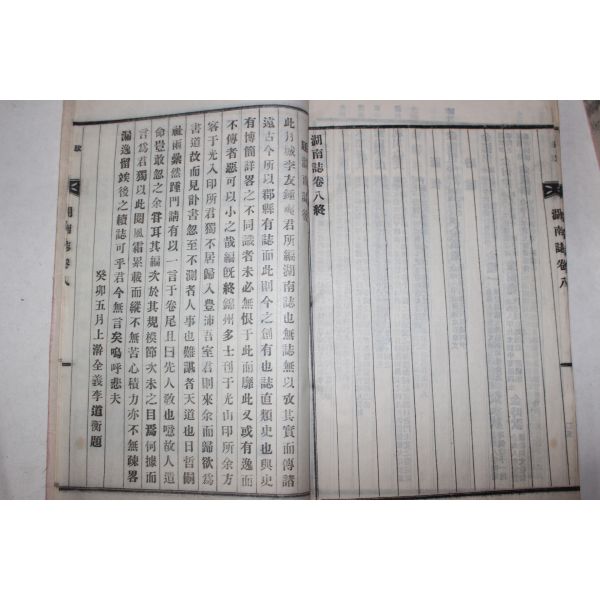 湖南誌卷八
湖南誌卷八終
此月城李友鍾君所編湖南誌也無誌無以攷其實而傳諸
遠古今所以郡縣有誌而此則今之創有也誌直類史也與史
有博簡詳畧之不同識者未必無恨于此而靡此又或有逸而
不傳者惡可以小之哉編旣終錦州多士刊于光山印所余方
客于光入印所君獨不居歸入豊沛吾室君則來余而歸欲爲
書道故而見訃書忽至不測者人事也難諶者天道也日哲嗣
祉雨纍然踵門請有以一言于卷尾且曰先人敎也噫故人遺
命豈敢忽之余耳其編次於其規模節次未之目焉何據而
言爲君獨以此閱風霜累載而縱不無苦心積力亦不無疎畧
漏逸留竢後之續誌可乎君今無言矣嗚呼悲夫
癸卯五月上澣全義李道衡題